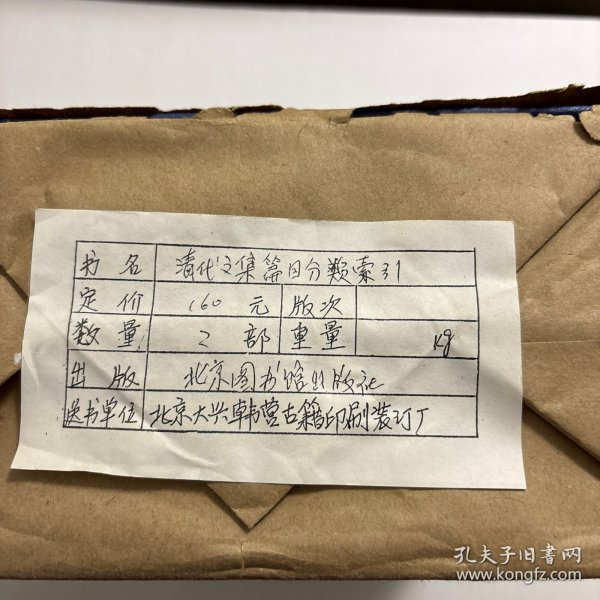 书名 清代文集篇目分类索引
定价 160 元 版次
数量 2 部 重量 kg
出版 北京图书馆出版社
送书单位 北京大兴韩营古籍印刷装订厂
孔夫子旧书网
www.kongfz.com